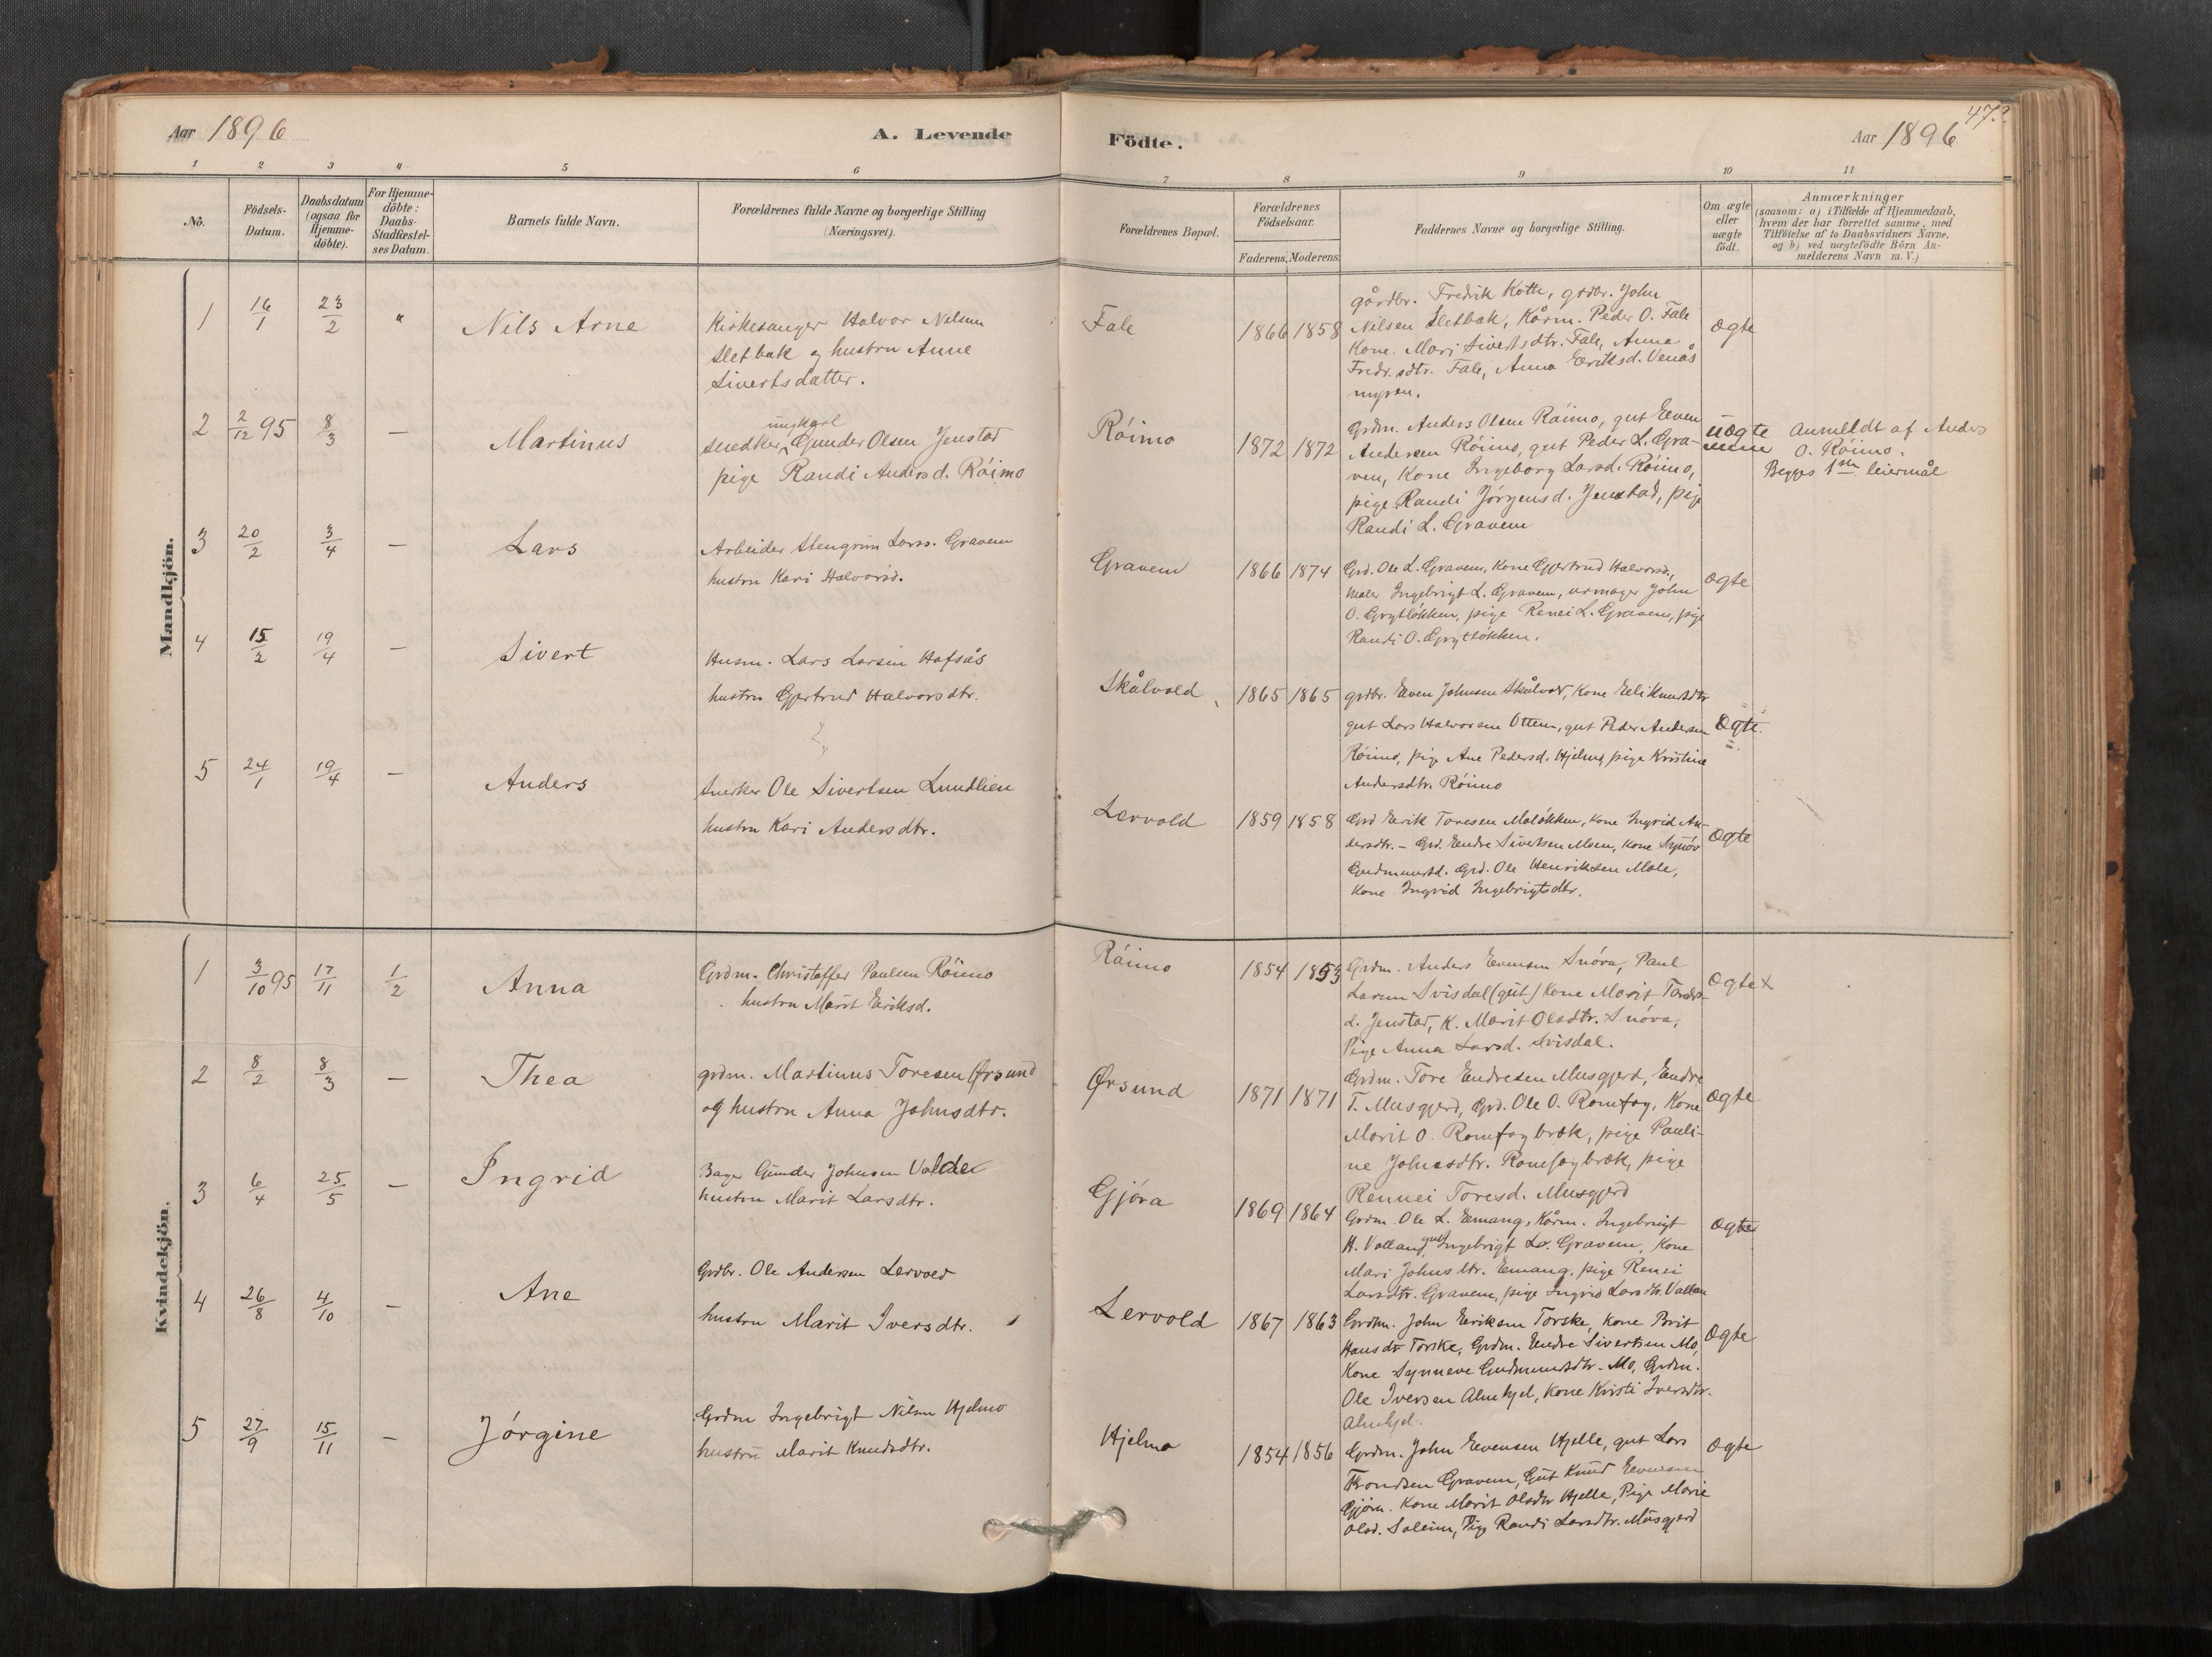 Aar 1896
A. Levende
Födte.
Aar 1896
47.
1 2 3 4 5 6 7 8 9 10 11
No.
Födsels-
Datum.
Daabsdatum
(ogsaa for
Hjemme-
döbte).
For Hjemme-
döbte:
Daabs-
Stadfæstel-
ses Datum.
Barnets fulde Navn.
Forældrenes fulde Navne og borgerlige Stilling
(Næringsvei).
Forældrenes Bopæl.
Forældrenes
Födselsaar.
Faderens. Moderens.
Faddernes Navne og borgerlige Stilling.
Om ægte
eller
uægte
födt.
Anmærkninger
(saasom: a) i Tilfælde af Hjemmedaab,
hvem der har forrettet samme, med
Tilföielse af to Daabsvidners Navne.
og b) ved uægtefödte Börn An-
melderens Navn m.V.)
Mandkjön.
1 16/1 23/2 " Nils Arne
Kirkesanger Halvor Nilsen
Sletbak og hustru Anne
Sivertsdatter.
Fale 1866 1858
gårdbr. Fredrik Kotte, grdbr. John
Nilsen Sletbak, Kårm. Peder O. Fale
Kone Mari Sivertsdtr. Fale, Anna
Fredr.sdtr. Fale, Anna Eriksd. Venås
myren.
Ægte
2 2/12 95 8/3 — Martinus
ungkarl
Snedker Gunder Olsen Jenstad
pige Randi Andersd. Röimo
Röimo 1872 1872
Grdm. Anders Olsen Röimo, gut Even
Andersen Röimo, gut Peder L. Gra-
vem, Kone Ingeborg Larsd. Röimo,
pige Randi Jörgensd. Jenstad, pige
Randi L. Gravem
uægte
Anmeldt af Anders
O. Röimo.
Begges 1ste leiermål
3 20/2 3/4 — Lars
Arbeider Stengrim Larss. Gravem
hustru Kari Halvorsd.
Gravem 1866 1874
Grd. Ole L. Gravem, Kone Gjertrud Halvorsd.,
Maler Ingebrigt L. Gravem, urmager John
O. Grytlökken, pige Renei L. Gravem, pige
Randi O. Grytlökken.
Ægte
4 15/2 19/4 — Sivert
Husm. Lars Larsen Hafsås
hustru Gjertrud Halvorsdtr.
Skålvold 1865 1865
grdbr. Even Johnsen Skålvold, Kone Eli Knutsdtr
gut Lars Halvorsen Ottem, gut Peder Andersen
Röimo, pige Ane Pedersd. Hjelmo, pige Kristine
Andersdtr. Röimo
Ægte.
5 24/1 19/4 — Anders
Snerker Ole Sivertsen Lundlien
hustru Kari Andersdtr.
Lervold 1859 1858
Grd Eerik Toresen Molökken, Kone Ingrid An-
dersdtr. – Grd. Endre Sivertsen Moen, Kone Synöv
Gudmundsd. Grd. Ole Henriksen Mæle,
Kone Ingrid Ingebrigtsdtr.
Ægte
Kvindekjön.
1 3/10 95 17/11 1/2 Anna
Grdm. Christoffer Paulsen Röimo
hustru Marit Eriksd.
Röimo 1854 1853
Grdm. Anders Evensen Snöva, Paul
Larsen Svisdal (gut) Kone Marit Tords-
d. Jenstad, K. Marit Olsdtr. Snöva,
Pige Anna Larsd. Svisdal.
Ægte x
2 8/2 8/3 — Thea
grdm. Martinus Toresen Ørsund
og hustru Anna Johnsdtr.
Ørsund 1871 1871
Grdm. Tore Endresen Musgjerd, Endre
T. Musgjerd, Grd. Ole O. Romfog, Kone
Marit O. Romfogbræk, pige Pauli-
ne Johnsdtr. Romfogbræk, pige
Rennei Toresd. Musgjerd
Ægte
3 6/4 25/5 — Ingrid
Bager Gunder Johnsen Valde
hustru Marit Larsdtr.
Gjöra 1869 1864
Grdm. Ole L. Emang, Kårm. Ingebrigt
H. Valland, gut Ingebrigt Ls. Gravem, Kone
Mari Johnsdtr. Emang, pige Renei
Larsdtr. Gravem, pige Ingrid Larsdtr. Vallan
Ægte
4 26/8 4/10 — Ane
Grdbr. Ole Andersen Lervold
hustru Marit Iversdtr.
Lervold 1867 1863
Grdm. John Eriksen Torske, Kone Brit
Hansdr Torske, Grdm. Endre Sivertsen Mo,
Kone Synneve Gudmundsdtr. Mo, Grdm.
Ole Iversen Almhjel, Kone Kristi Iversdtr.
Almhjel.
Ægte
5 27/9 15/11 — Jörgine
Grdm Ingebrigt Nilsen Hjelmo
hustru Marit Knudsdtr.
Hjelmo 1854 1856
Grdm. John Evensen Hjelle, gut Lars
Trondsen Gravem, Gut Knud Evensen
Gjöra. Kone Marit Olsdtr Hjelle, Pige Marie
Olsd. Saleim, Pige Randi Larsdtr. Musgjerd
Ægte